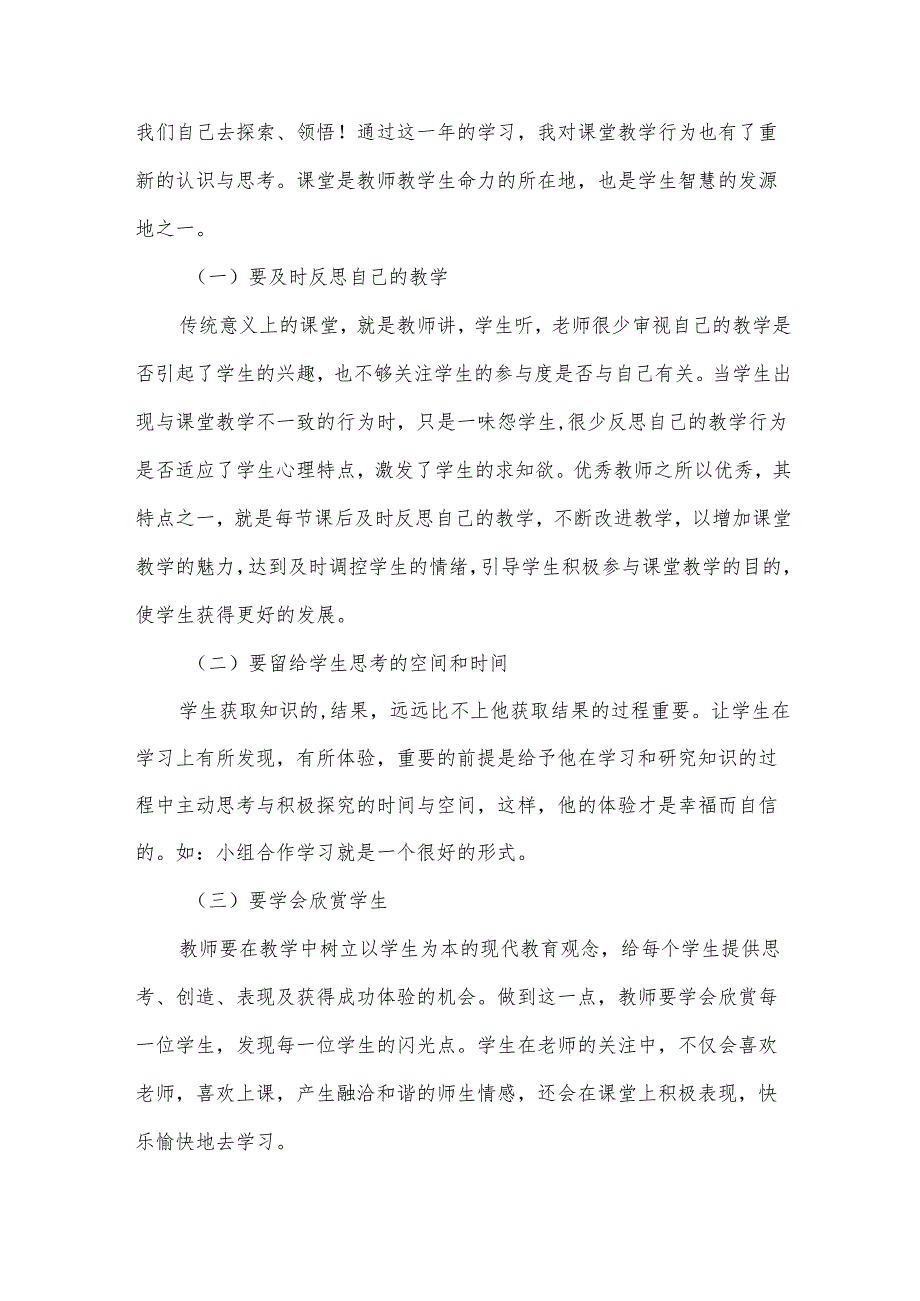 我们自己去探索、领悟！通过这一年的学习，我对课堂教学行为也有了重
新的认识与思考。课堂是教师教学生命力的所在地，也是学生智慧的发源
地之一。
（一）要及时反思自己的教学
传统意义上的课堂，就是教师讲，学生听，老师很少审视自己的教学是
否引起了学生的兴趣，也不够关注学生的参与度是否与自己有关。当学生出
现与课堂教学不一致的行为时，只是一味怨学生,很少反思自己的教学行为
是否适应了学生心理特点，激发了学生的求知欲。优秀教师之所以优秀，其
特点之一，就是每节课后及时反思自己的教学，不断改进教学，以增加课堂
教学的魅力,达到及时调控学生的情绪,引导学生积极参与课堂教学的目的，
使学生获得更好的发展。
（二）要留给学生思考的空间和时间
学生获取知识的,结果，远远比不上他获取结果的过程重要。让学生在
学习上有所发现，有所体验，重要的前提是给予他在学习和研究知识的过
程中主动思考与积极探究的时间与空间，这样，他的体验才是幸福而自信
的。如：小组合作学习就是一个很好的形式。
（三）要学会欣赏学生
教师要在教学中树立以学生为本的现代教育观念，给每个学生提供思
考、创造、表现及获得成功体验的机会。做到这一点，教师要学会欣赏每
一位学生，发现每一位学生的闪光点。学生在老师的关注中，不仅会喜欢
老师，喜欢上课，产生融洽和谐的师生情感，还会在课堂上积极表现，快
乐愉快地去学习。